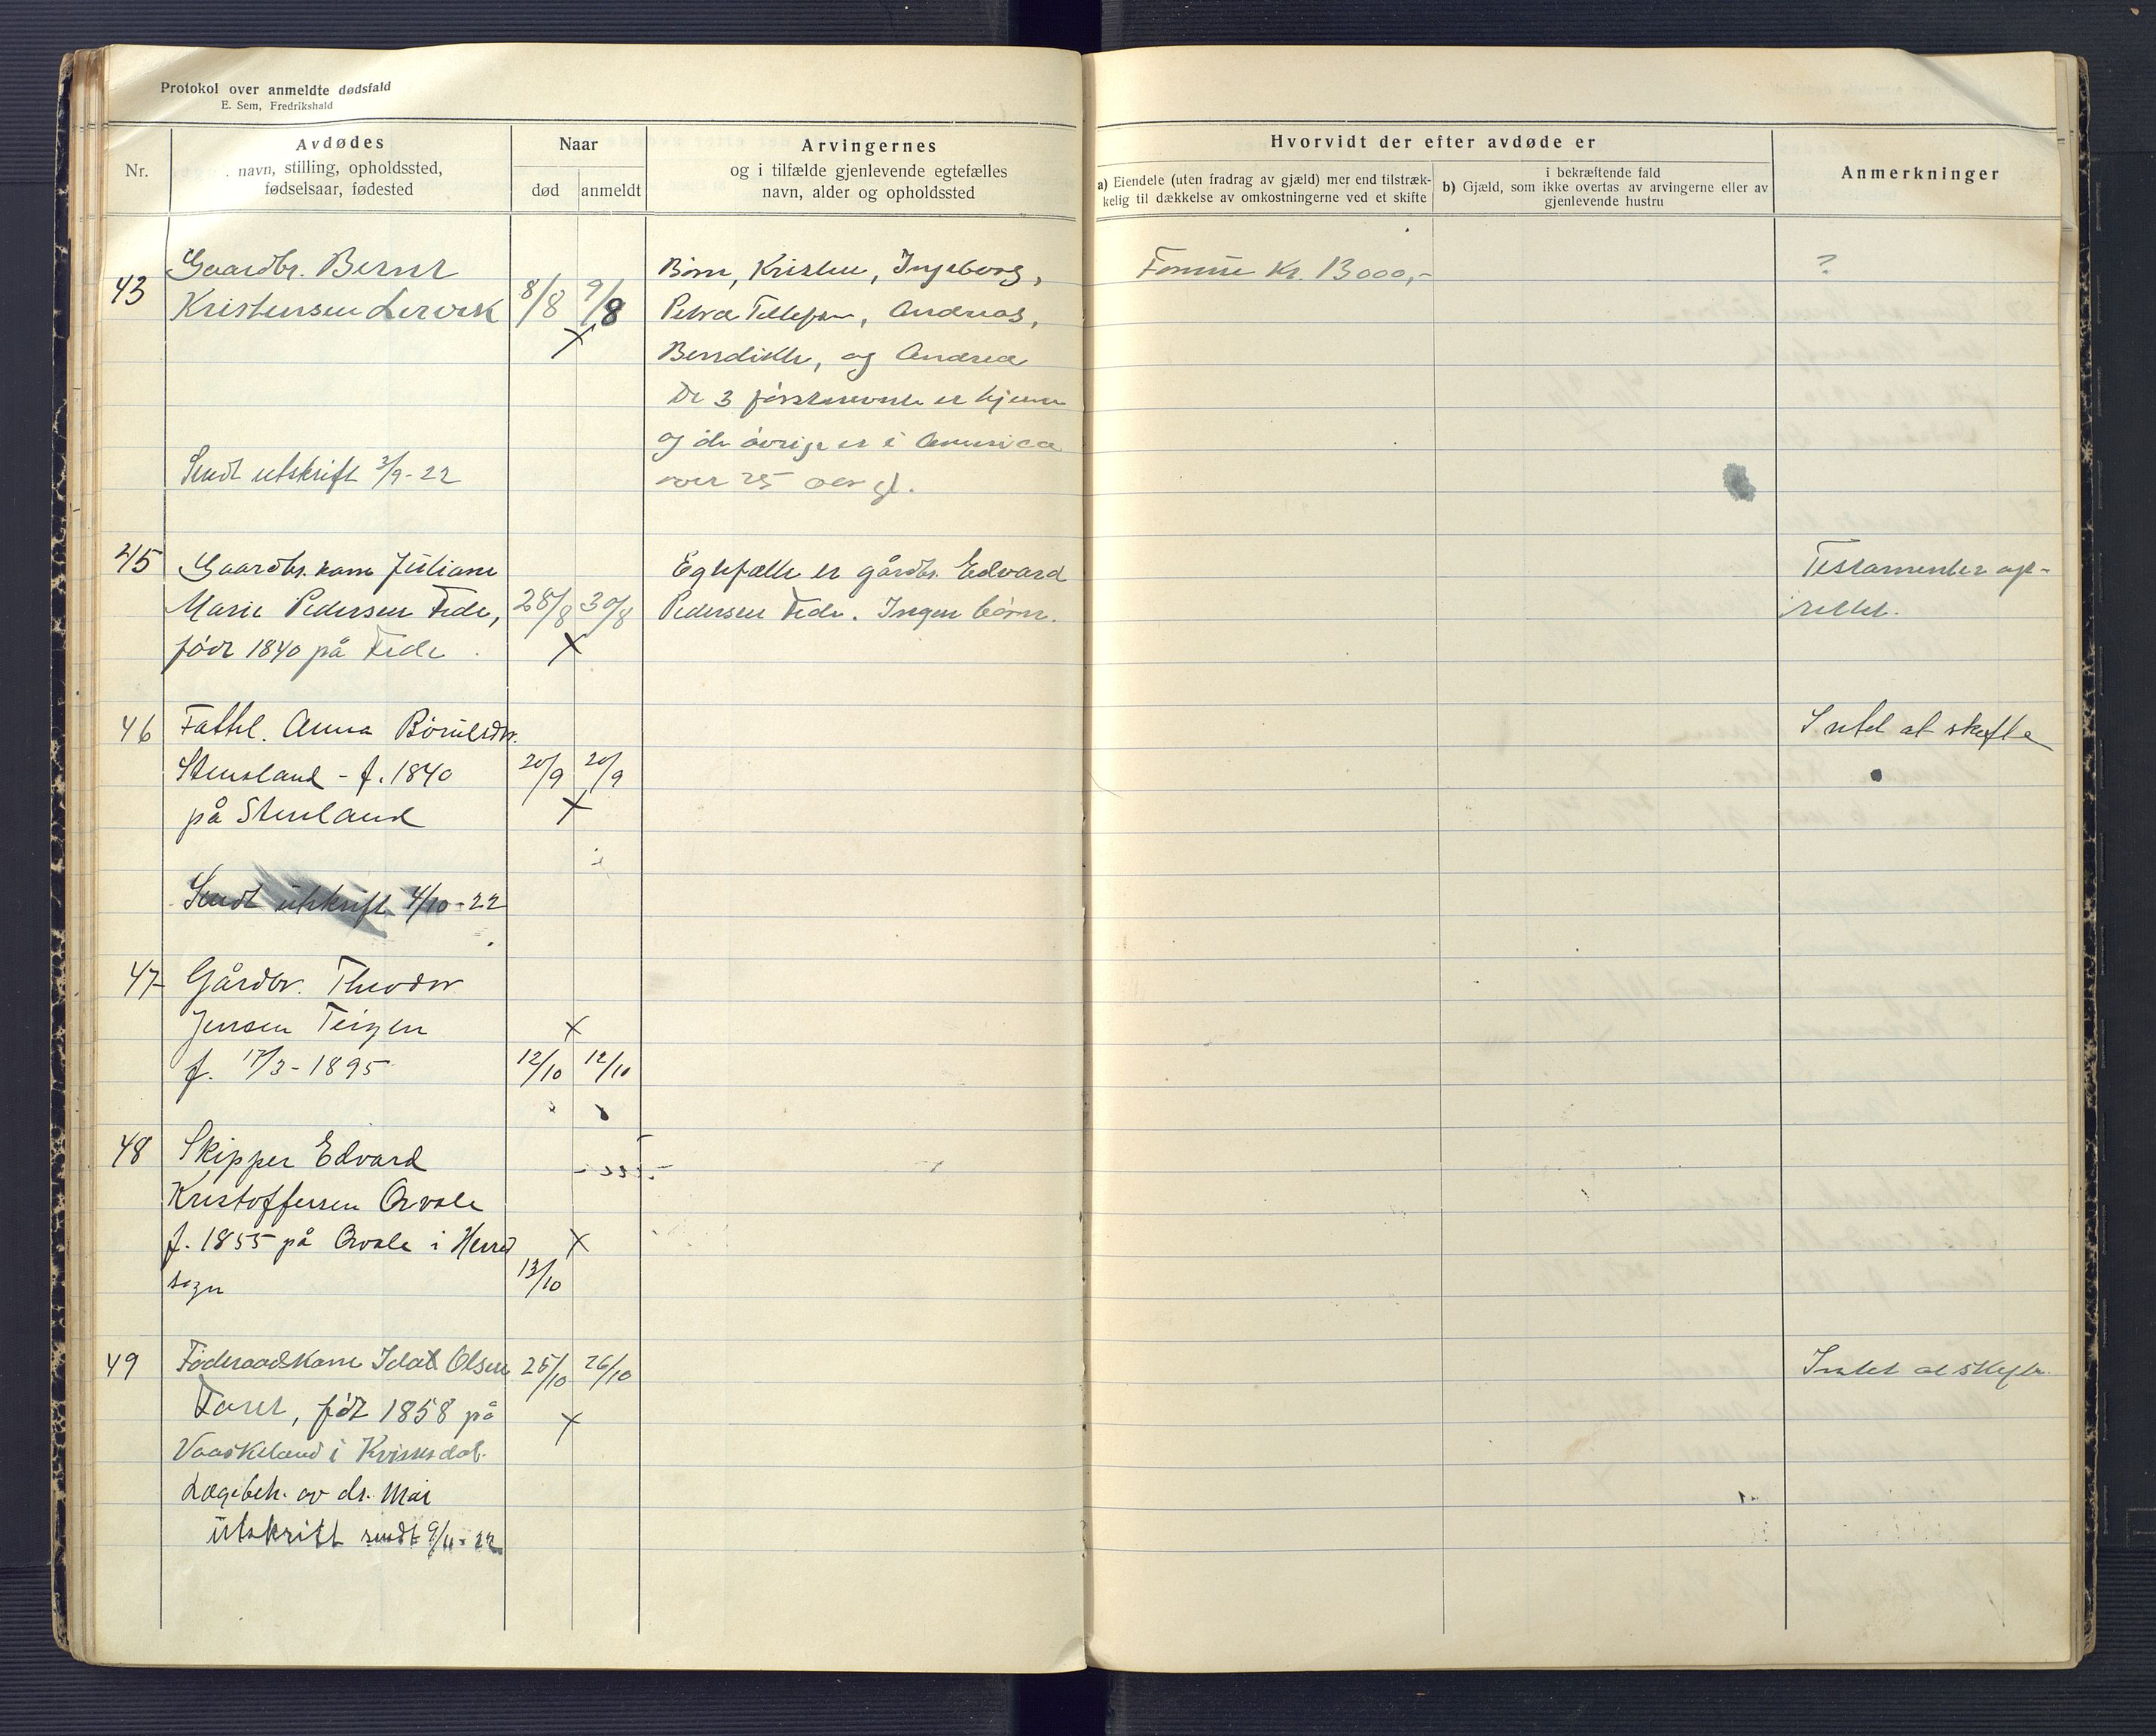 Protokol over anmeldte dødsfald
E. Sem, Fredrikshald
Nr.
Avdødes
navn, stilling, opholdssted,
fødselsaar, fødested
Naar
død
anmeldt
Arvingernes
og i tilfælde gjenlevende egtefælles
navn, alder og opholdssted
Hvorvidt der efter avdøde er
a) Eiendele (uten fradrag av gjæld) mer end tilstræk-
kelig til dækkelse av omkostningerne ved et skifte
i bekræftende fald
b) Gjæld, som ikke overtas av arvingerne eller av
gjenlevende hustru
Anmerkninger
43
Gaardbr. Bernt
Kristensen Lervik
8/8 9/8
x
Sendt utskrift 3/9-22
Børn, Kristen, Ingeborg,
Petra Tellefsen, Andreas,
Bendikte, og Andrea
De 3 førstnevnte er hjeme
og de øvrige er i America
over 25 aar gl.
Formue Kr. 13000,-
?
45
Gaardbr. kone Juliane
Marie Pedersen Fede,
født 1840 på Fede
28/8 30/8
x
Egtefælle er gårdbr. Edvard
Pedersen Fede. Ingen børn.
Testamenter op-
rettet.
46
Fattl. Anna Børuldsdtr.
Stensland - f. 1840
på Stensland
20/9 20/9
x
Sendt utskrift 4/10-22
Intet at skifte
47
Gårdbr. Theodor
Jensen Teigen
f. 17/3-1895
x
12/10 12/10
48
Skipper Edvard
Kristoffersen Osvale
f. 1855 på Osvale i Herred
sogn
x
13/10
49
Føderaadskone Ida Olsen
født 1858 på
Vaaskeland i Kvinesdal.
Lægebeh. av dr. Moi
utskrift sendt 9/11-22
25/10 26/10
x
Intet at skifte.